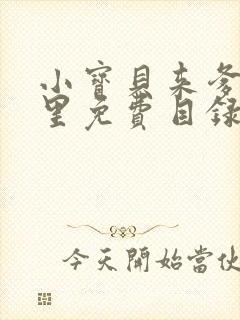 小寶貝来爹
里免費目録
今天開始當伙